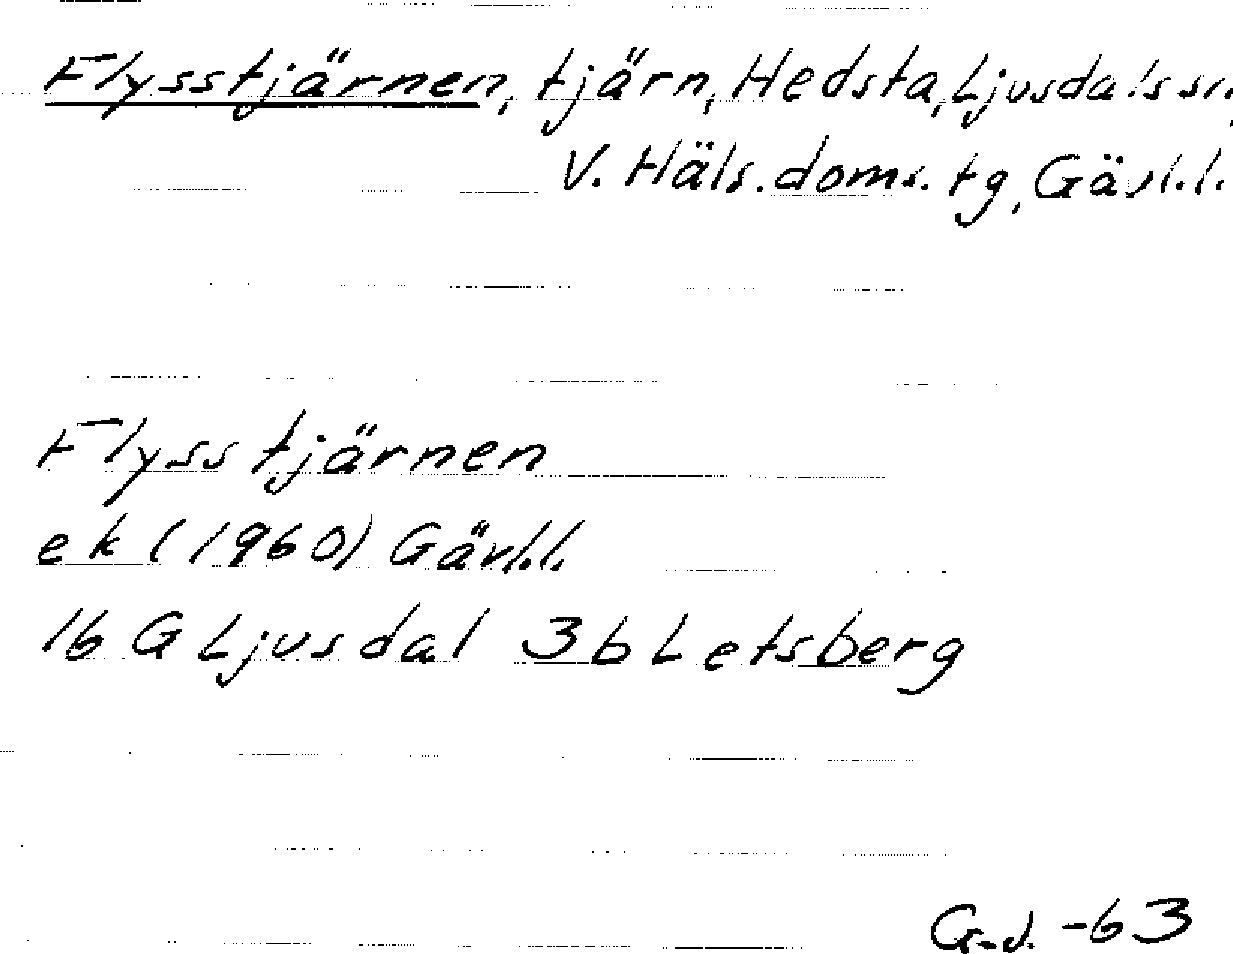 Flysstjärnen, tjärn, Hedsta, Ljusdals sn,
V. Häls. doms. tg, Gävl.l.
Flysstjärnen
ek (1960) Gävl.l.
16 G Ljusdal 3b Letsberg
G-d. -63